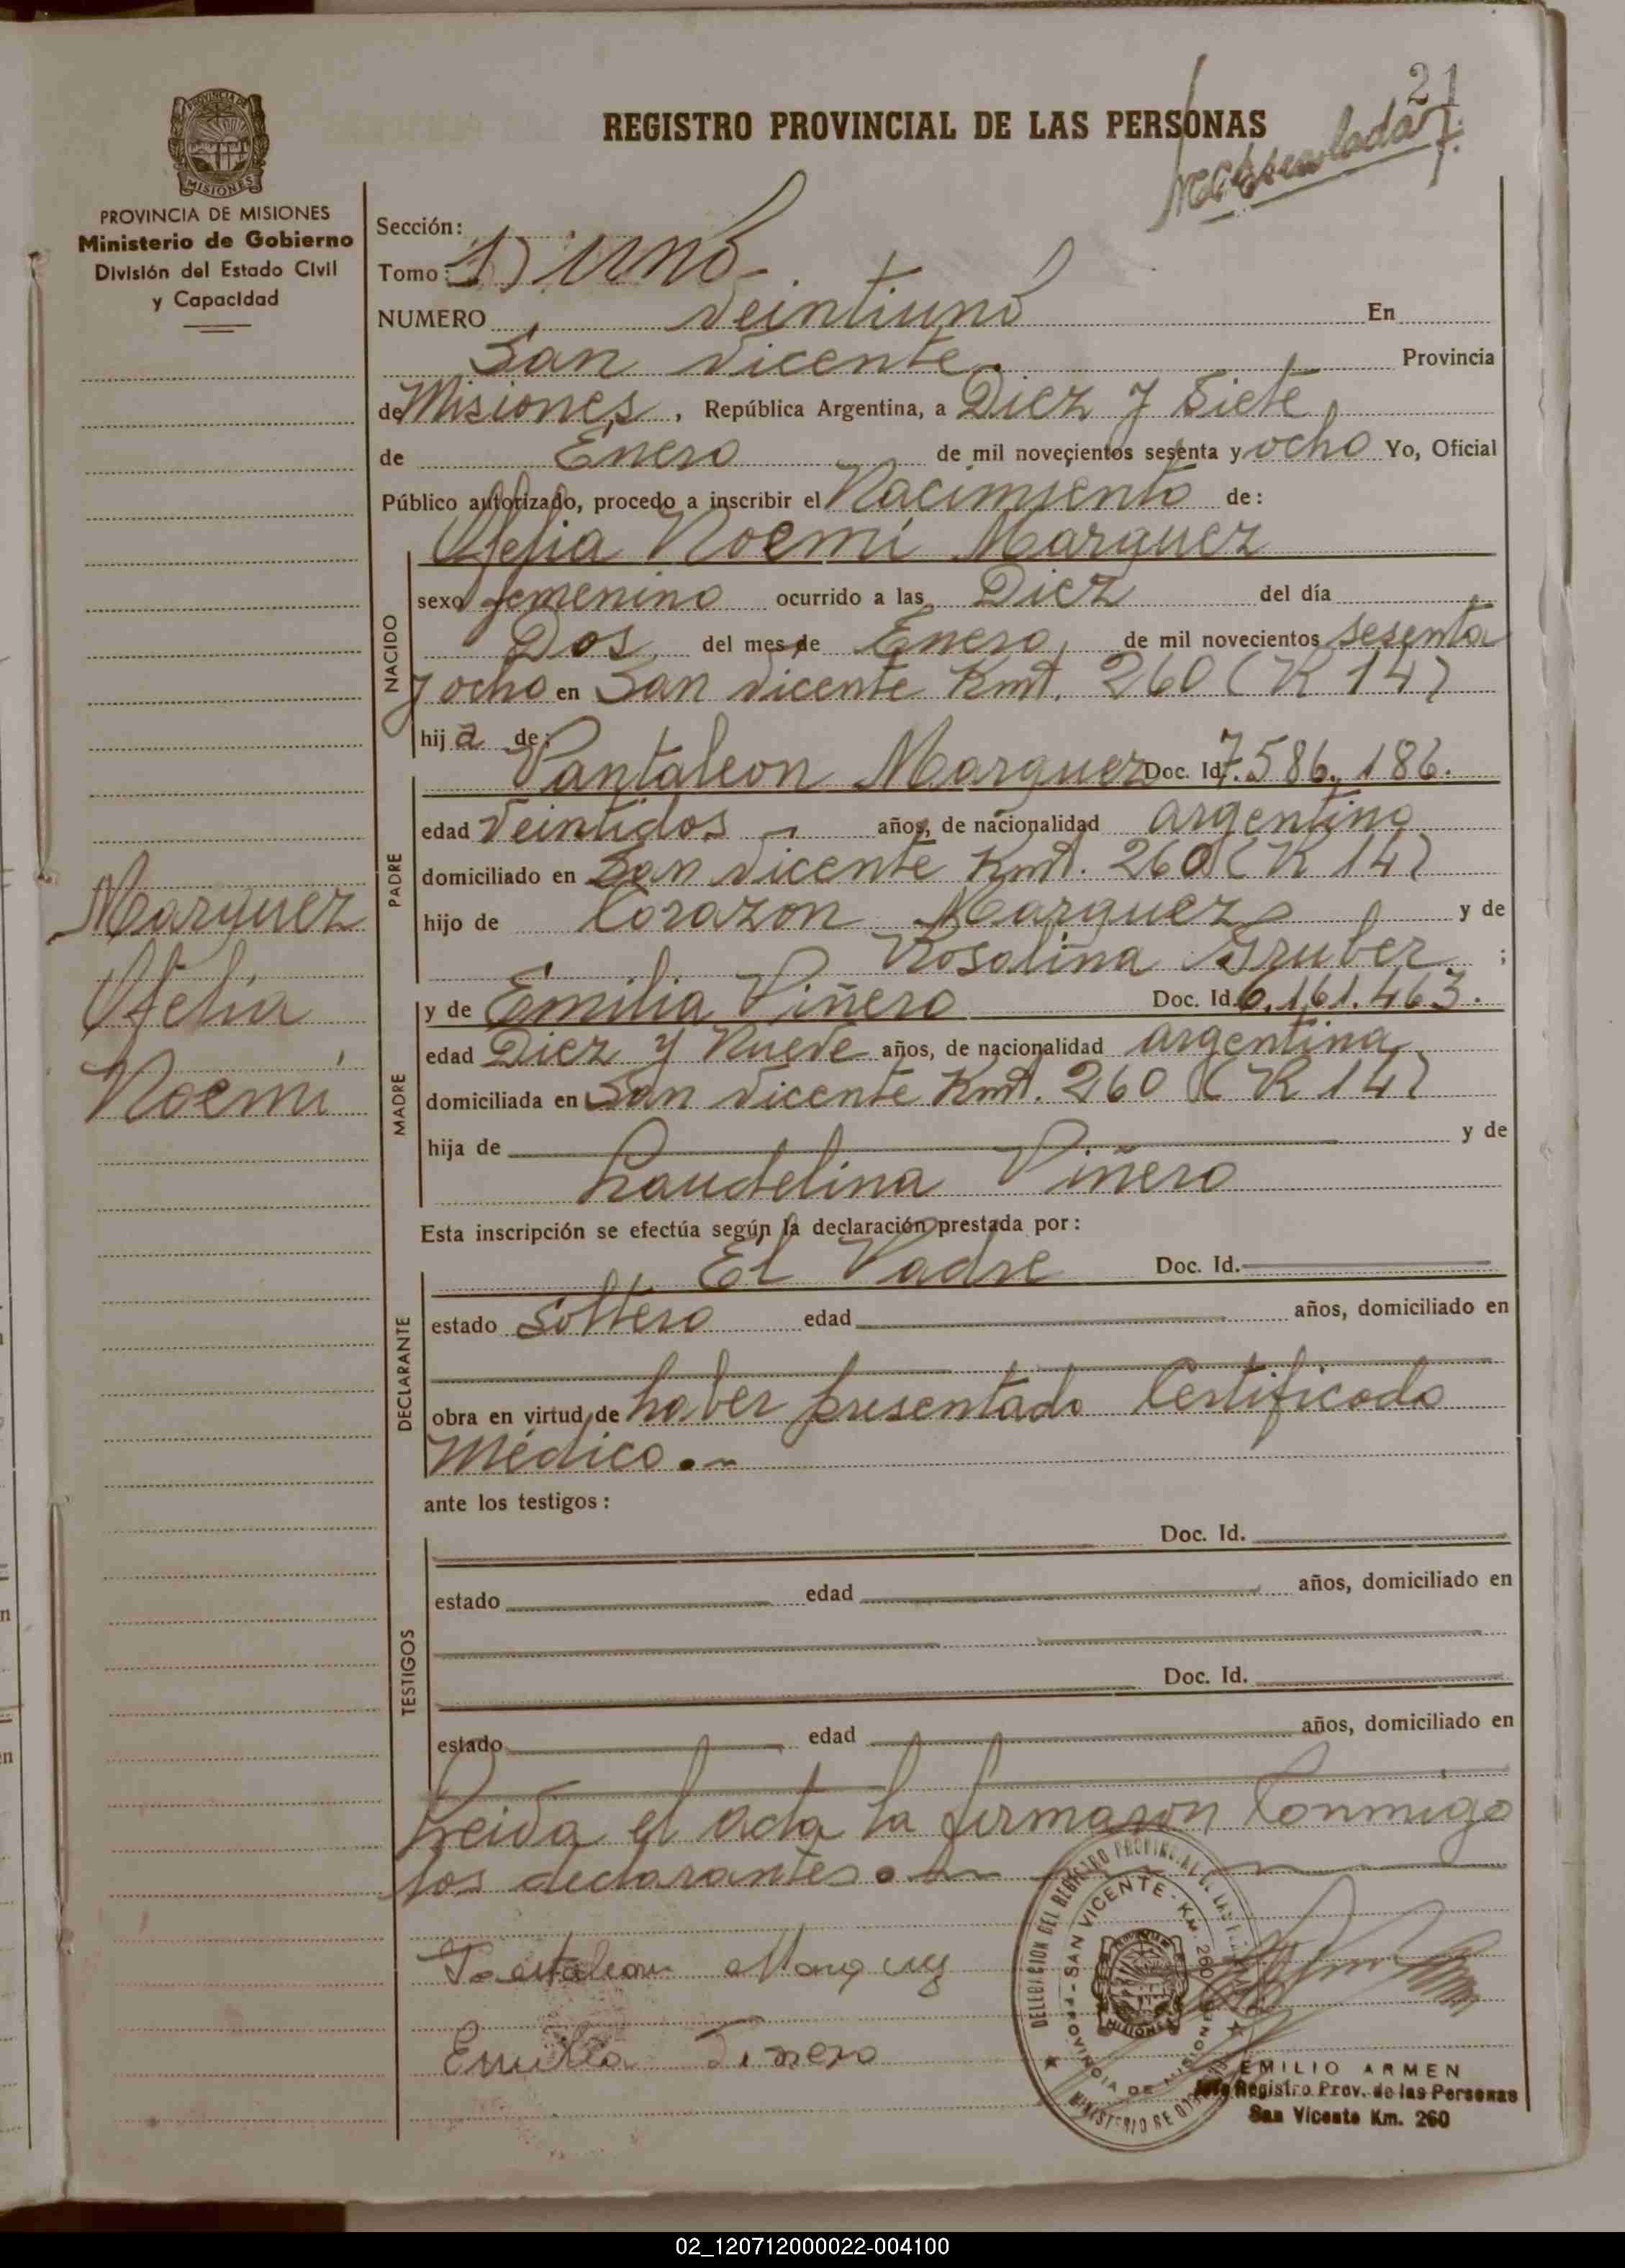 21
REGISTRO PROVINCIAL DE LAS PERSONAS
PROVINCIA DE
MISIONES
PROVINCIA DE MISIONES
Ministerio de Gobierno
División del Estado Civil
y Capacidad
Sección:
Tomo: 1) uno-
NUMERO veintiuno En
San Vicente. Provincia
de Misiones, República Argentina, a Diez y Siete
de Enero de mil novecientos sesenta y ocho Yo, Oficial
Público autorizado, procedo a inscribir el Nacimiento de:
Ofelia Noemi Marquez
NACIDO
sexo femenino ocurrido a las Diez del día
Dos del mes de Enero, de mil novecientos sesenta
y ocho en San Vicente Kmt. 260 (R 14)
hija de:
Pantaleon Marquez Doc. Id. 7.586.186.
PADRE
edad Veintidos años, de nacionalidad argentino
domiciliado en San Vicente Kmt. 260 (R 14)
hijo de Corazon Marquez y de
Rosalina Gruber ;
Marquez
Ofelia
Noemi
MADRE
y de Emilia Piñero Doc. Id. 6.161.463.
edad Diez y Nueve años, de nacionalidad argentina
domiciliada en San Vicente Kmt. 260 (R 14)
hija de y de
Laudelina Piñero
Esta inscripción se efectúa según la declaración prestada por:
DECLARANTE
El Padre Doc. Id.
estado Soltero edad años, domiciliado en
obra en virtud de haber presentado Certificado
Médico.-
ante los testigos:
TESTIGOS
Doc. Id.
estado edad años, domiciliado en
Doc. Id.
estado edad años, domiciliado en
Leida el acta la firmaron Conmigo
los declarantes.-
Pantaleon Marquez
Emilia Pinero
SAN VICENTE - KM. 260
PROVINCIA DE MISIONES
EMILIO ARMEN
Registro Prov. de las Personas
San Vicente Km. 260
02_120712000022-004100